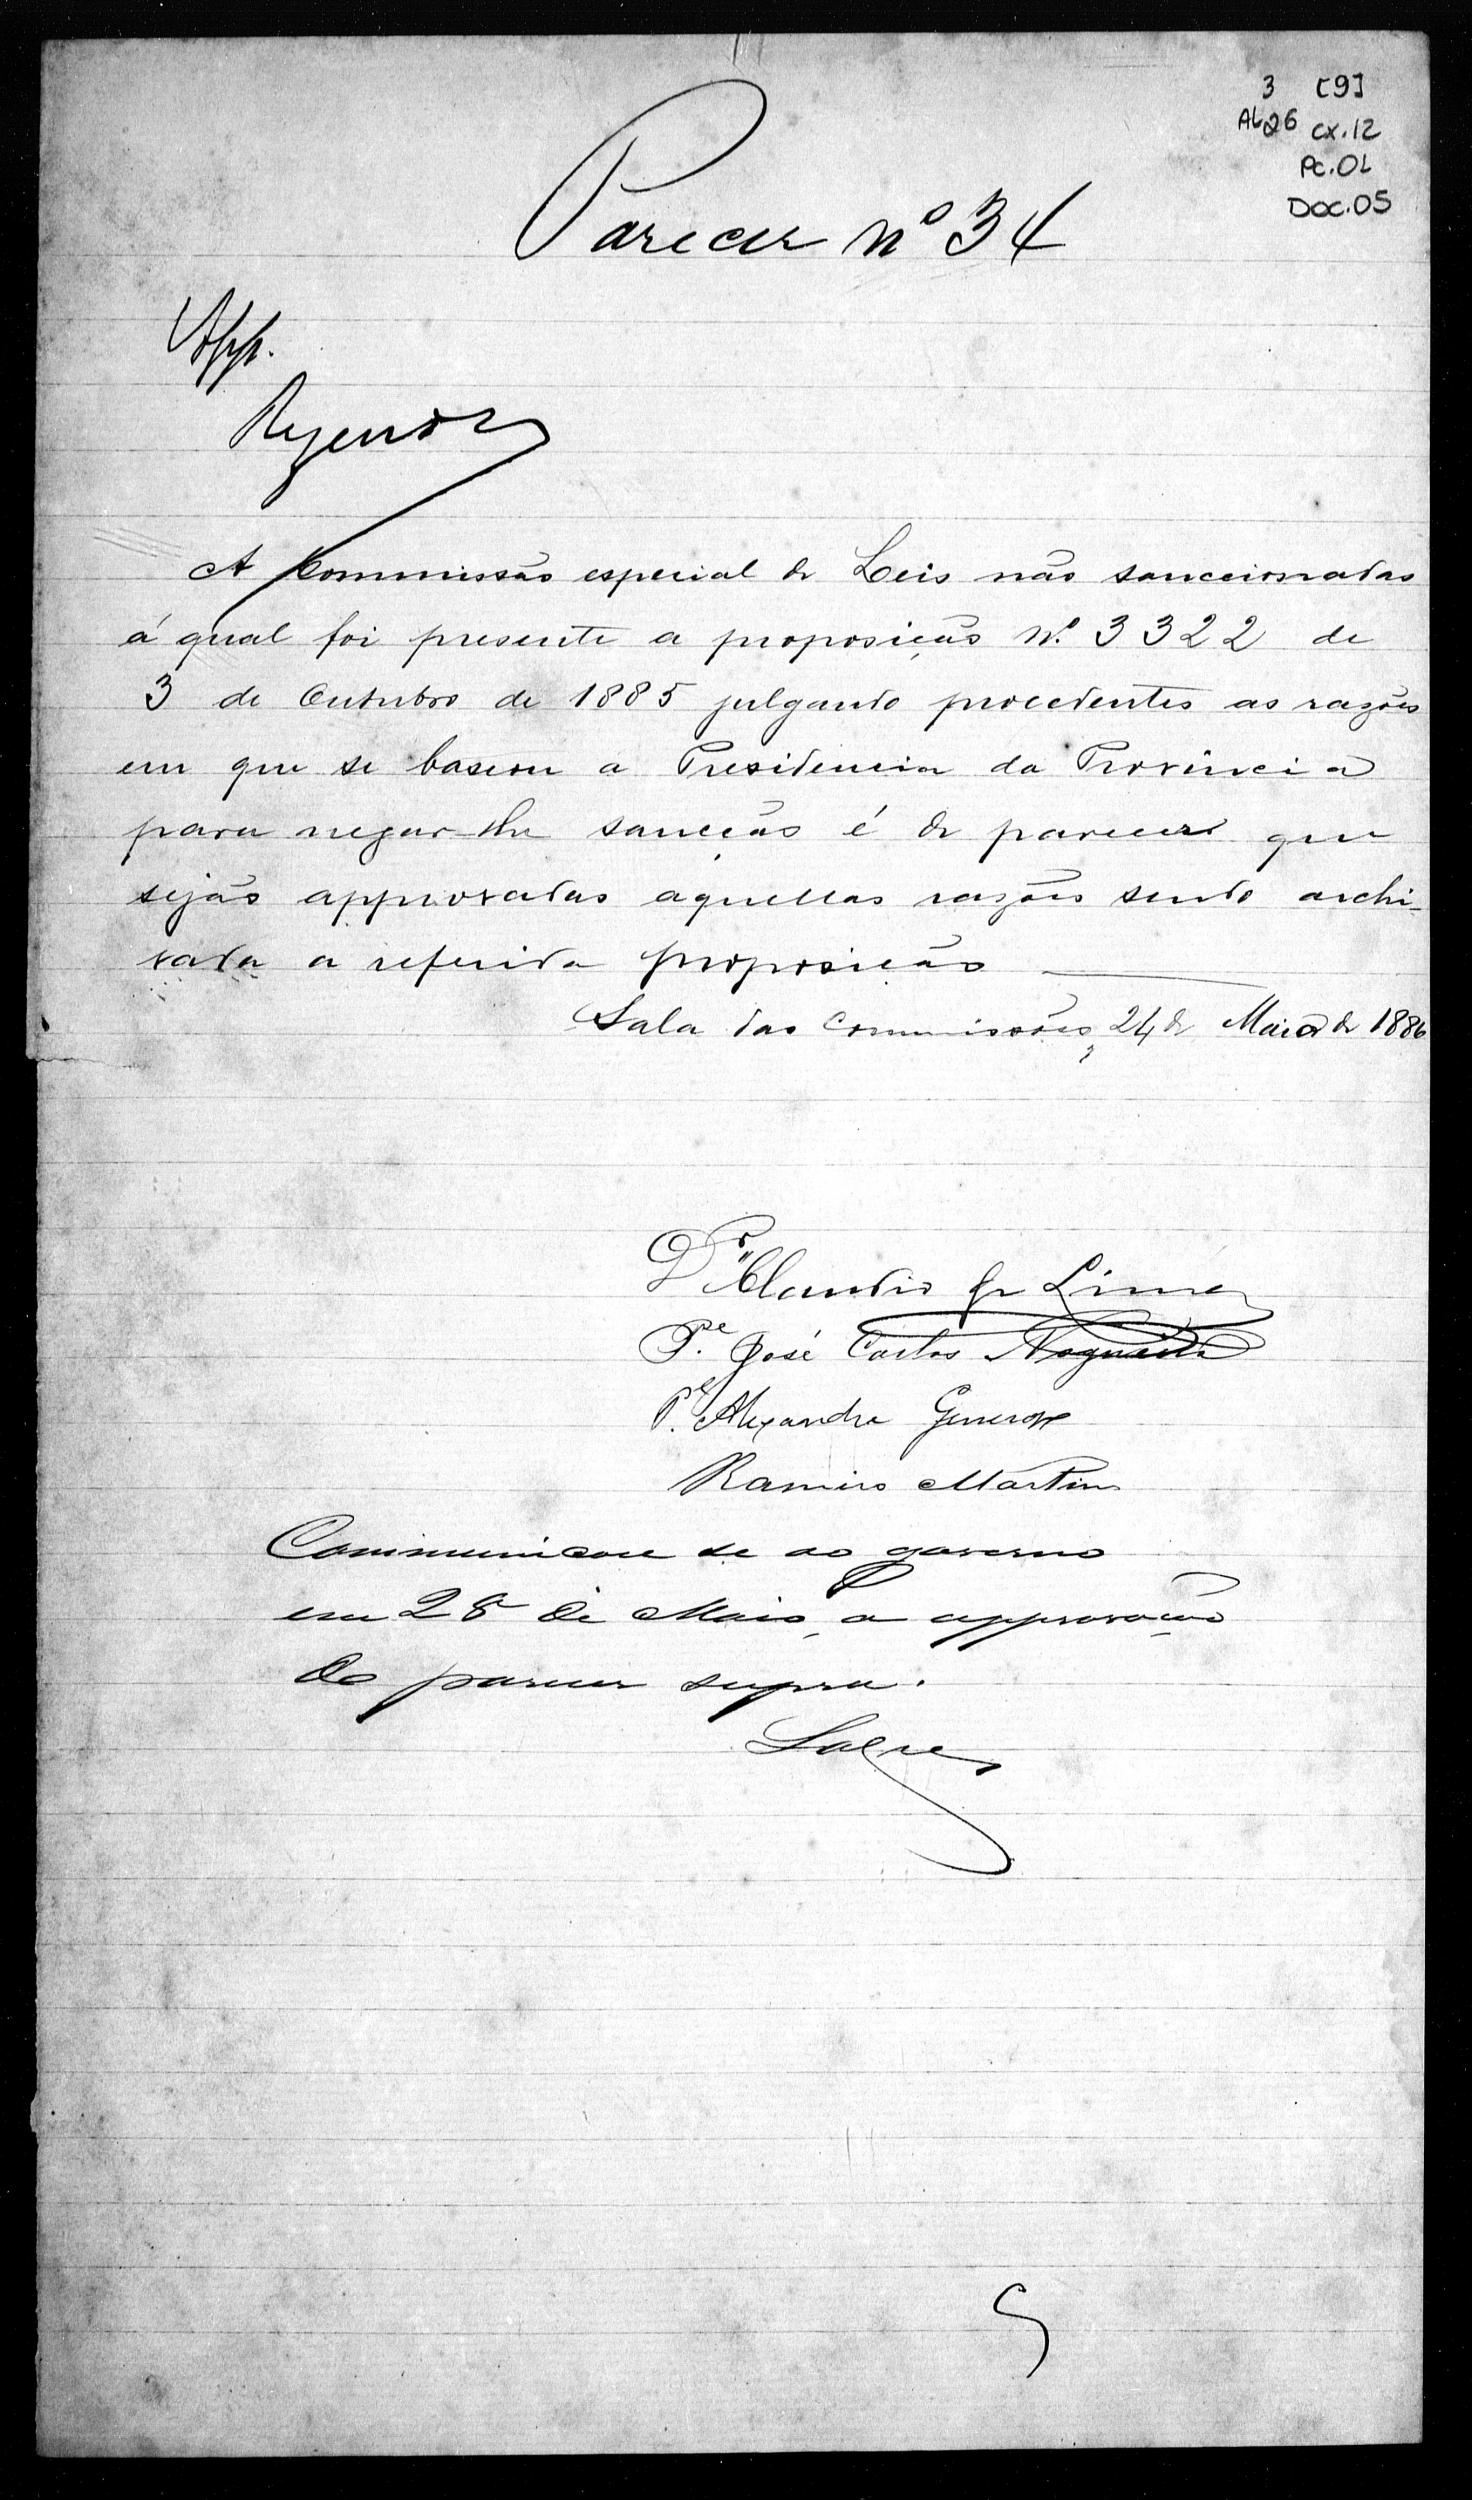 3 [9]
AL 26 cx.12
Pc.01
Doc.05
Parecer nº 34
App.
A Commissão especial de Leis não sanccionadas
á qual foi presente a proposição N.º 3322 de
3 de Outubro de 1885 julgando procedentes as razões
em que se baseou a Presidencia da Provincia
para negar-lhe sancção é de parecer que
sejão approvadas aquellas razões sendo archi-
vada a referida proposição
Sala das Commissões, 24 de Maio de 1886
Dr Claudio de Lima
P.e José Carlos Nogueira
P.e Alexandre Generoso
Ramiro Martins
Communicou se ao governo
em 28 de Maio, a approvação
do parecer supra.